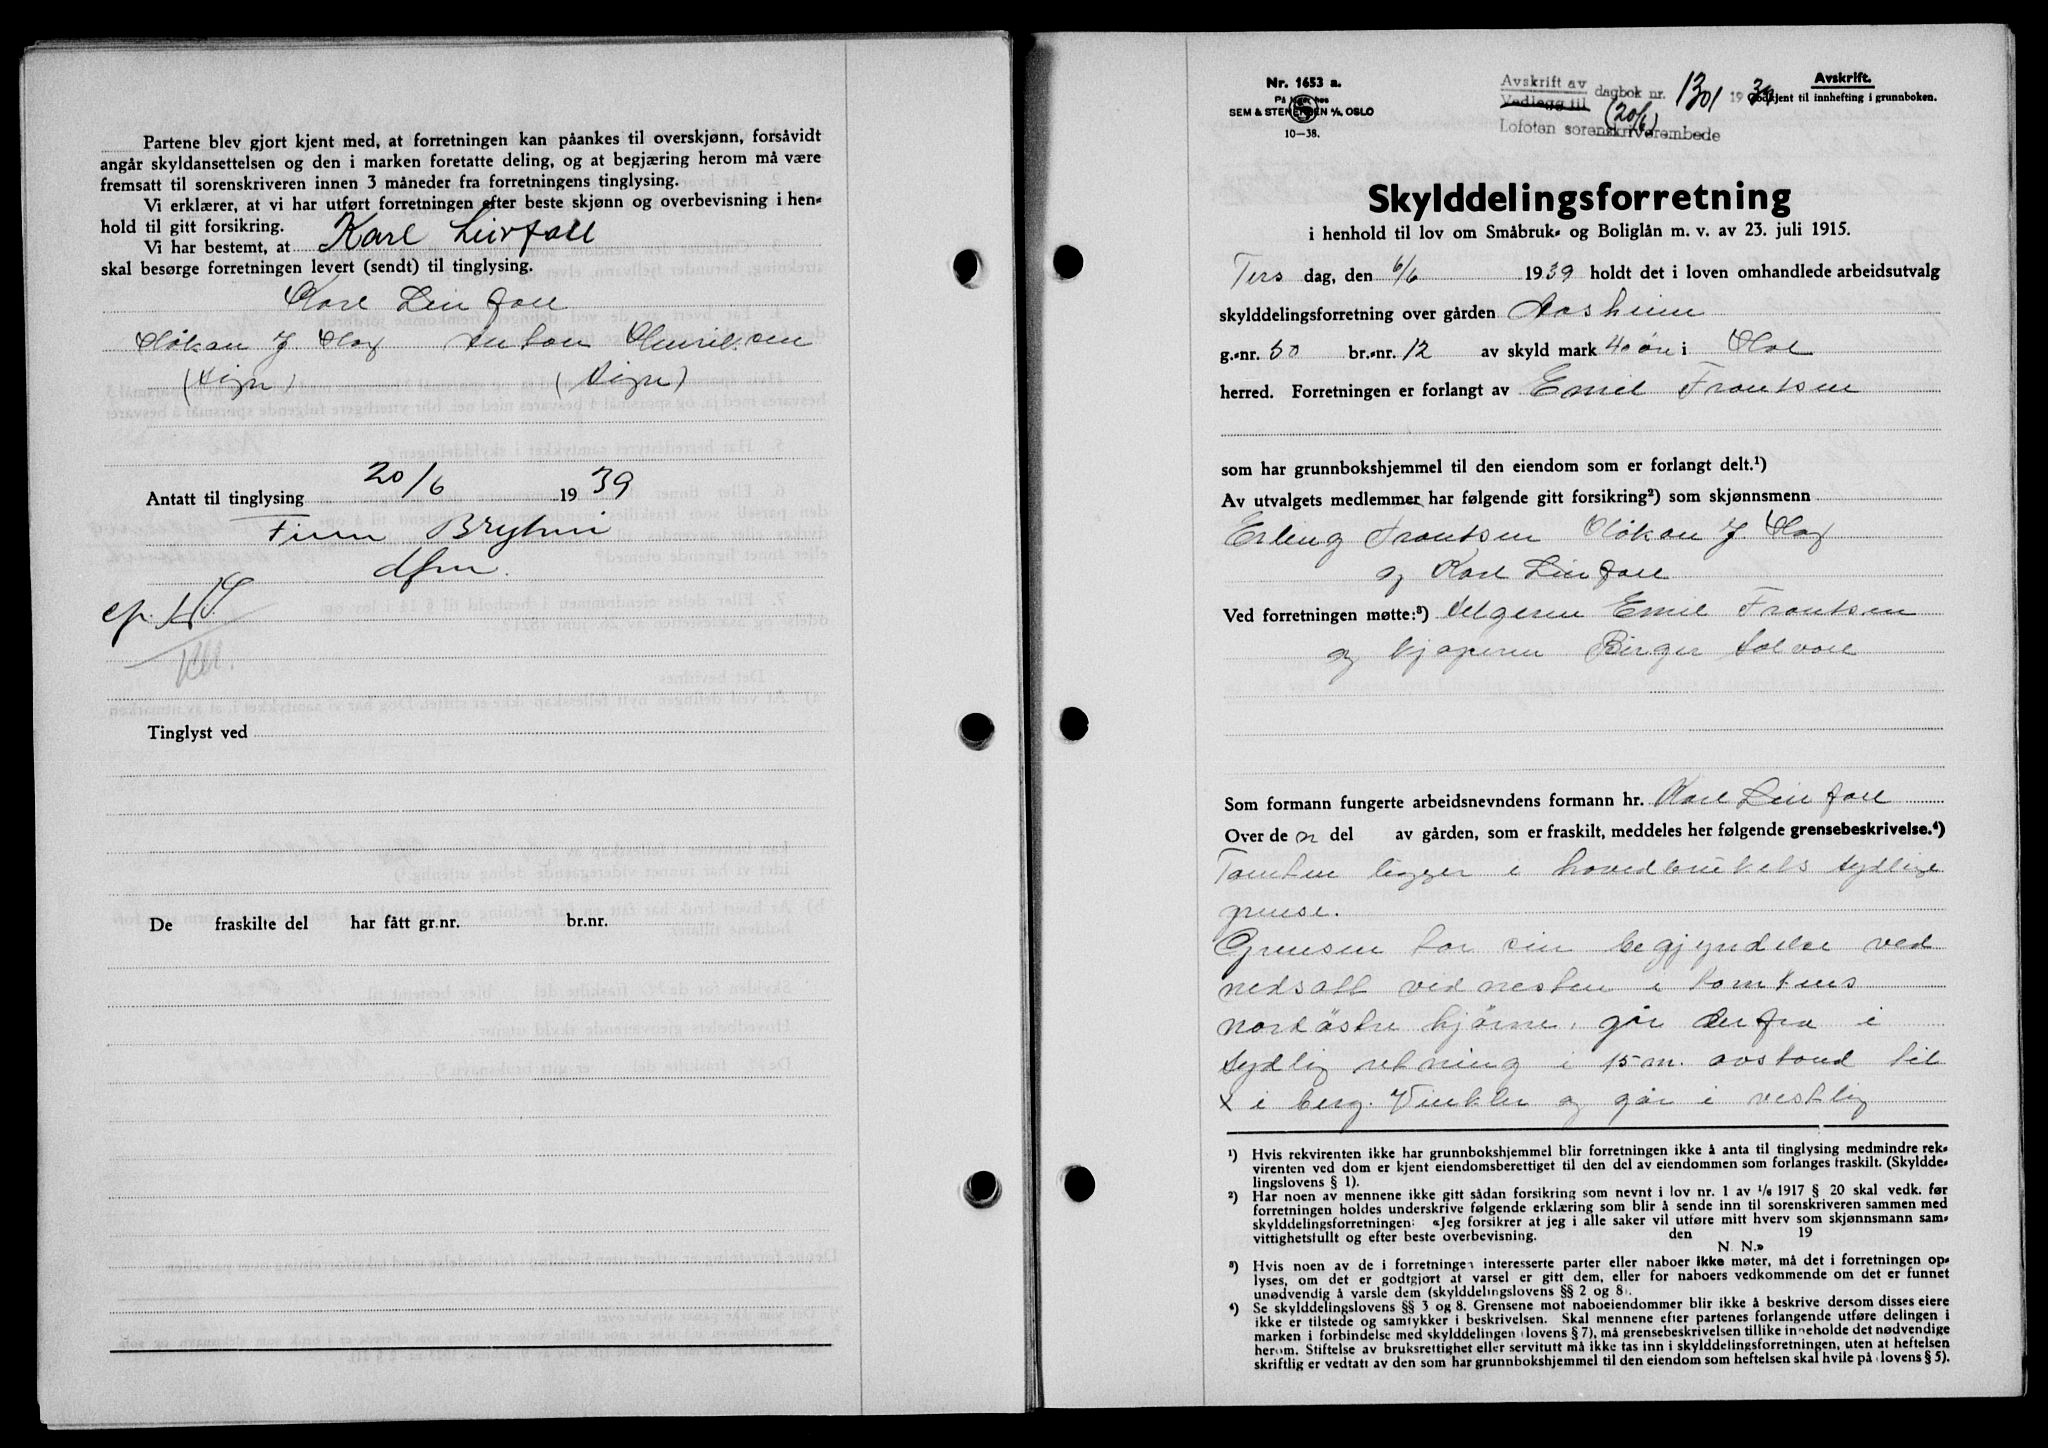 Partene blev gjort kjent med, at forretningen kan påankes til overskjønn, forsåvidt
angår skyldansettelsen og den i marken foretatte deling, og at begjæring herom må være
fremsatt til sorenskriveren innen 3 måneder fra forretningens tinglysing.
Vi erklærer, at vi har utført forretningen efter beste skjønn og overbevisning i hen-
hold til gitt forsikring.
Vi har bestemt, at Karl Leirfall
skal besørge forretningen levert (sendt) til tinglysing.
Karl Leirfall
Håkon J Hag Anton Henriksen
(Sign) (Sign)
Antatt til tinglysing 20/6 1939
Finn Brynhi
dfm.
Tinglyst ved
De fraskilte del har fått gr.nr. br.nr.
Nr. 1653 a.
På lager hos
SEM & STENERSEN A/S, OSLO
10-38.
Avskrift av
Vedlegg til dagbok nr. 1301 1939
(20/6)
Lofoten sorenskriverembede
Avskrift.
Godkjent til innhefting i grunnboken.
Skylddelingsforretning
i henhold til lov om Småbruk- og Boliglån m. v. av 23. juli 1915.
Tirs dag, den 6/6 1939 holdt det i loven omhandlede arbeidsutvalg
skylddelingsforretning over gården Aasheim
g.-nr. 50 br.-nr. 12 av skyld mark 40 øre i Hol
herred. Forretningen er forlangt av Emil Frantsen
som har grunnbokshjemmel til den eiendom som er forlangt delt.¹)
Av utvalgets medlemmer har følgende gitt forsikring²) som skjønnsmenn
Erling Frantsen Håkon J Hag
og Karl Leirfall
Ved forretningen møtte:³) Selgeren Emil Frantsen
og kjøperen Birger Solvoll
Som formann fungerte arbeidsnevndens formann hr. Karl Leirfall
Over de n del av gården, som er fraskilt, meddeles her følgende grensebeskrivelse.⁴)
Tomten ligger i hovedbrukets sydlige
grense.
Grensen tar sin begjyndelse ved
nedsatt vidnesten i tomtens
nordöstre hjörne, går derfra i
sydlig retning i 15 m. avstand til
x i berg. Vinkler og går i vestlig
¹) Hvis rekvirenten ikke har grunnbokshjemmel blir forretningen ikke å anta til tinglysing medmindre rek-
virenten ved dom er kjent eiendomsberettiget til den del av eiendommen som forlanges fraskilt. (Skyldde-
lingslovens § 1).
²) Har noen av mennene ikke gitt sådan forsikring som nevnt i lov nr. 1 av 1/6 1917 § 20 skal vedk. før
forretningen holdes underskrive følgende erklæring som blir å sende inn til sorenskriveren sammen med
skylddelingsforretningen: «Jeg forsikrer at jeg i alle saker vil utføre mitt hverv som skjønnsmann sam-
vittighetsfullt og efter beste overbevisning. den 19
N. N.»
³) Hvis noen av de i forretningen interesserte parter eller naboer ikke møter, må det i forretningen op-
lyses, om det er godtgjort at varsel er gitt dem, eller for naboers vedkommende om det er funnet
unødvendig å varsle dem (skylddelingslovens §§ 2 og 8).
⁴) Se skylddelingslovens §§ 3 og 8. Grensene mot naboeiendommer blir ikke å beskrive dersom disses eiere
ikke er tilstede og samtykker i beskrivelsen. Skal mennene efter partenes forlangende utføre delingen i
marken i forbindelse med skylddelingen (lovens § 7), må grensebeskrivelsen tillike inneholde det nødvendige
herom. Stiftelse av bruksrettighet eller servitutt må ikke tas inn i skylddelingsforretningen, uten at heftelsen
skriftlig er vedtatt av den som har grunnbokshjemmel til den eiendom som heftelsen skal hvile på (lovens § 5).